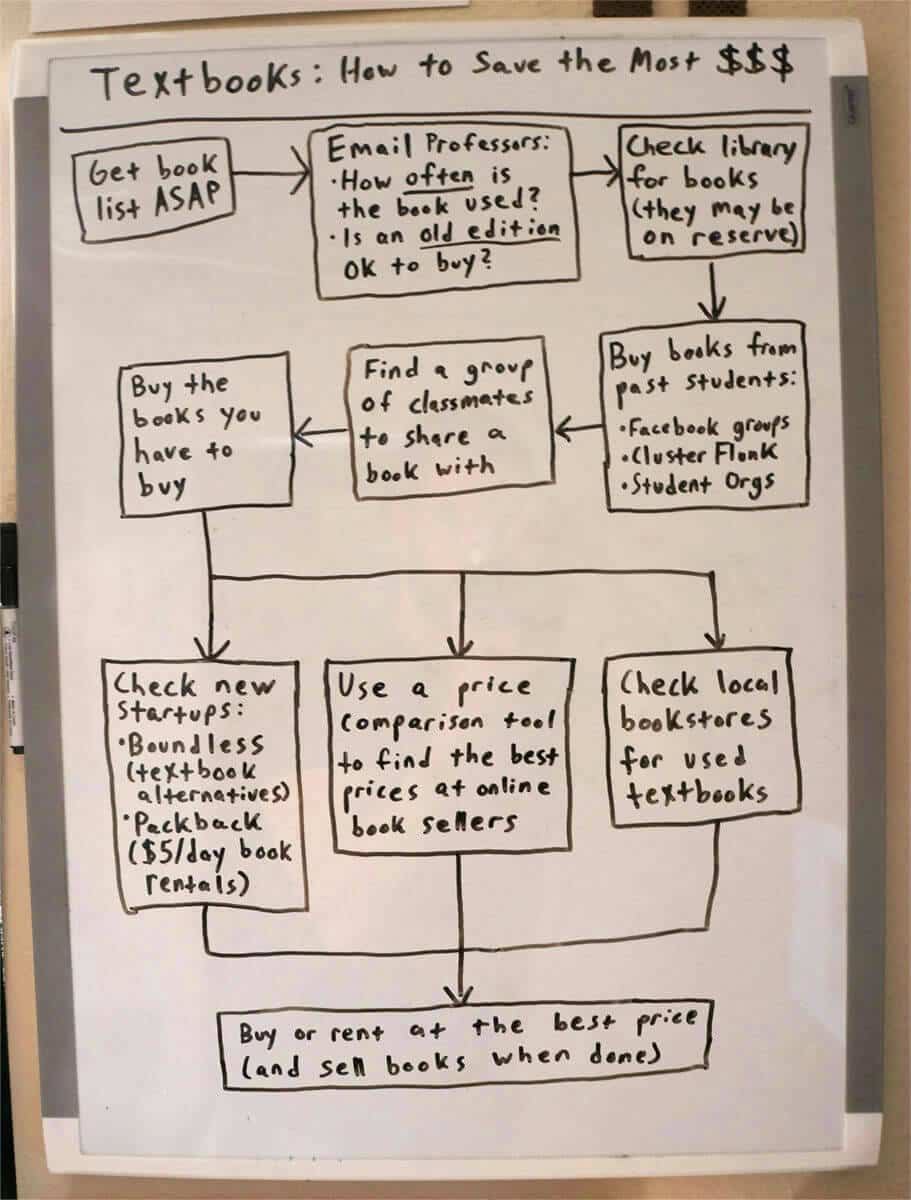 Textbooks: How to Save the Most $$$
Get book
list ASAP
Email Professors:
•How often is
the book used?
•Is an old edition
OK to buy?
Check library
for books
(they may be
on reserve)
Buy books from
past students:
•Facebook groups
•Cluster Flunk
•Student Orgs
Find a group
of classmates
to share a
book with
Buy the
books you
have to
buy
Check new
startups:
•Boundless
(textbook
alternatives)
•Packback
($5/day book
rentals)
Use a price
comparison tool
to find the best
prices at online
book sellers
Check local
bookstores
for used
textbooks
Buy or rent at the best price
(and sell books when done)